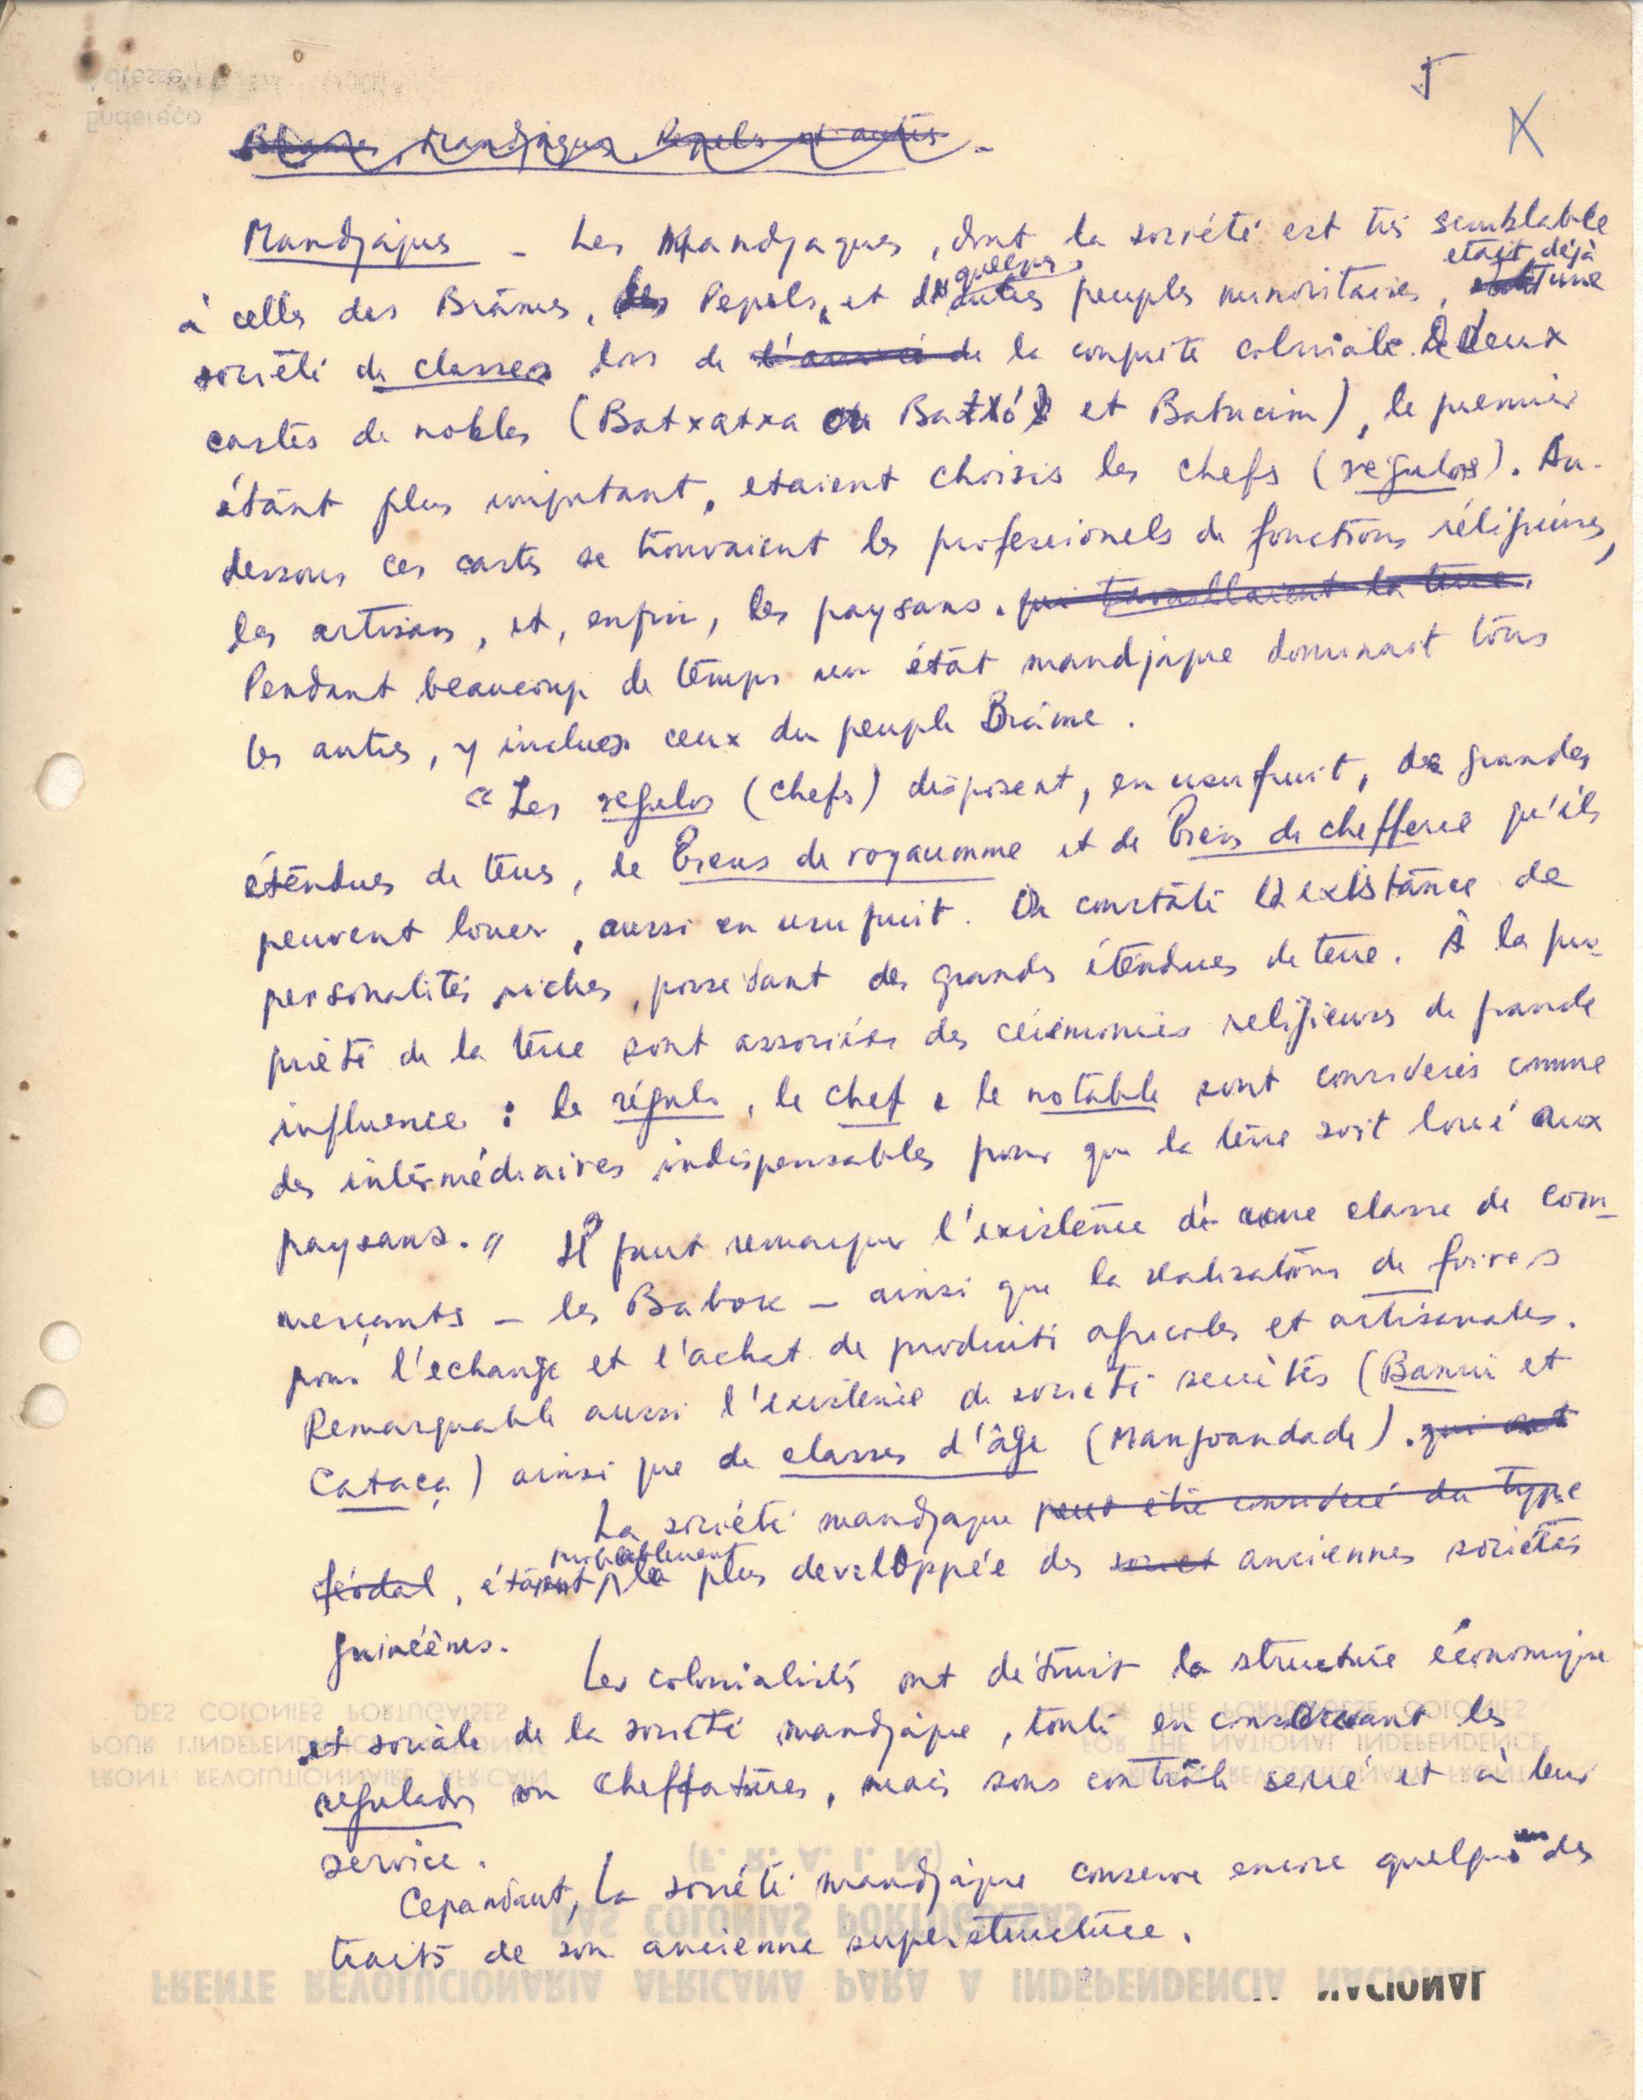 5
X
Brames, Mandjaques, Pepels et autres.
Mandjaques - Les Mandjaques, dont la société est très semblable
à celle des Brâmes, des Pepels, et de quelques autres peuples minoritaires, était déjà une
société de classes lors de l'arrivée de la conquête coloniale. De deux
castes de nobles (Batxatxa ou Batxó et Batucim), le premier
étant plus important, etaient choisis les chefs (regulos). Au-
dessous ces castes se trouvaient les professionels de fonctions réligieuses,
les artisans, et, enfin, les paysans. qui travaillaient la terre.
Pendant beaucoup de temps un état mandjaque dominait tous
les autres, y inclues ceux du peuple Brâme.
"Les regulos (chefs) disposent, en usufruit, de grandes
étendues de terres, de biens de royaumme et de biens de chefferie qu'ils
peuvent louer, aussi en usufruit. On constate l'existance de
personalités riches, possedant des grandes étendues de terre. À la pro-
priété de la terre sont associées des cérémonies religieuses de grande
influence : le régulo, le chef e le notable sont considerés comme
des intermédiaires indispensables pour que la terre soit loué aux
paysans." Il faut remarquer l'existence de une classe de com-
merçants - les Babok - ainsi que la realisations de foires
pour l'echange et l'achat de produits agricoles et artisanales.
Remarquable aussi l'existence de societé secrètes (Bansú et
Cataca) ainsi que de classes d'âge (Manjoandade). qui est
La société mandjaque peut être consideré du type
féodal, étant probablement la plus developpée des societ anciennes societés
guinéènes.
Les colonialistes ont détruit la structure économique
et sociale de la société mandjaque, toute en conservant les
regulados ou cheffatures, mais sous contrôle serré et à leur
service.
Cepandant, la société mandjaque conserve encore quelques des
traits de son ancienne superstructure.
Adresse
Endereço
DES COLONIES PORTUGAISES
OF THE PORTUGUESE COLONIES
POUR L'INDEPENDANCE NATIONALE
FOR THE NATIONAL INDEPENDENCE
FRONT REVOLUTIONNAIRE AFRICAIN
REVOLUTIONARY FRONT
(F. R. A. I. N.)
DAS COLONIAS PORTUGUESAS
FRENTE REVOLUCIONARIA AFRICANA PARA A INDEPENDENCIA NACIONAL